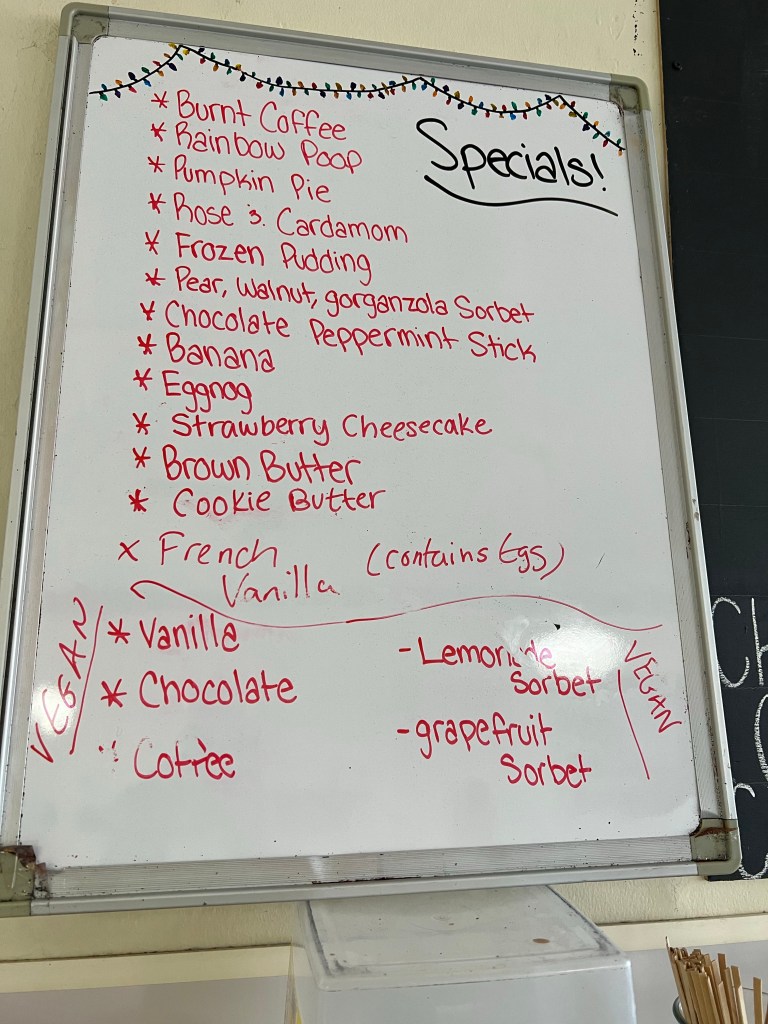 Specials!
* Burnt Coffee
* Rainbow Poop
* Pumpkin Pie
* Rose & Cardamom
* Frozen Pudding
* Pear, Walnut, gorganzola Sorbet
* Chocolate Peppermint Stick
* Banana
* Eggnog
* Strawberry Cheesecake
* Brown Butter
* Cookie Butter
x French (contains Egs)
Vanilla
VEGAN
* Vanilla
* Chocolate
Coffee
- Lemonade
Sorbet
- grapefruit
Sorbet
VEGAN